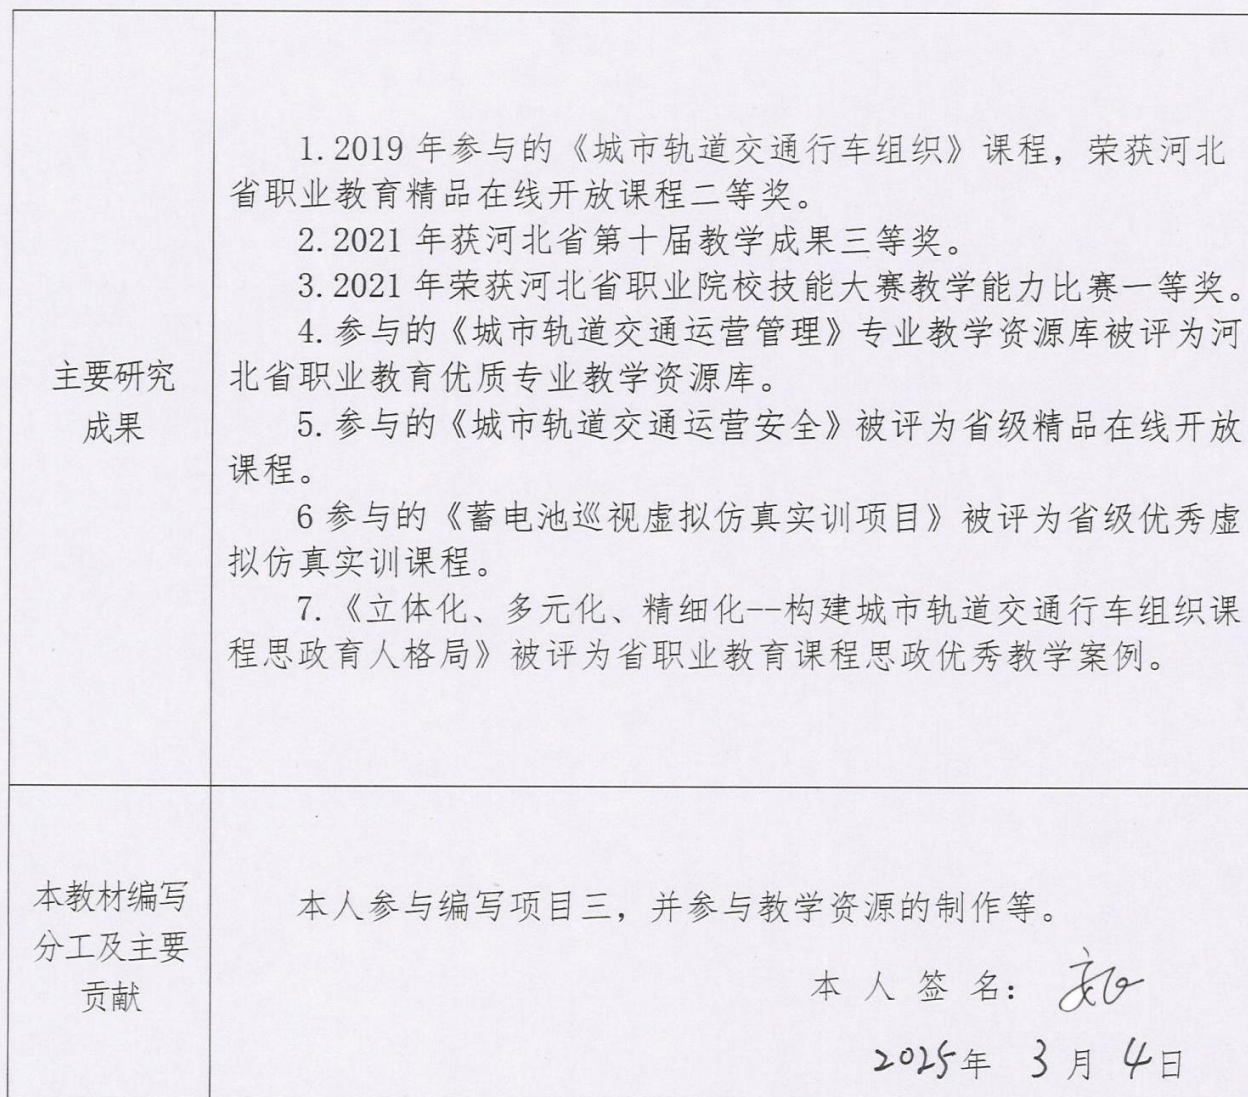 主要研究
成果
1.2019 年参与的《城市轨道交通行车组织》课程，荣获河北
省职业教育精品在线开放课程二等奖。
2.2021 年获河北省第十届教学成果三等奖。
3.2021 年荣获河北省职业院校技能大赛教学能力比赛一等奖。
4.参与的《城市轨道交通运营管理》专业教学资源库被评为河
北省职业教育优质专业教学资源库。
5.参与的《城市轨道交通运营安全》被评为省级精品在线开放
课程。
6 参与的《蓄电池巡视虚拟仿真实训项目》被评为省级优秀虚
拟仿真实训课程。
7.《立体化、多元化、精细化--构建城市轨道交通行车组织课
程思政育人格局》被评为省职业教育课程思政优秀教学案例。
本教材编写
分工及主要
贡献
本人参与编写项目三，并参与教学资源的制作等。
本 人 签 名：
2025年 3月 4日